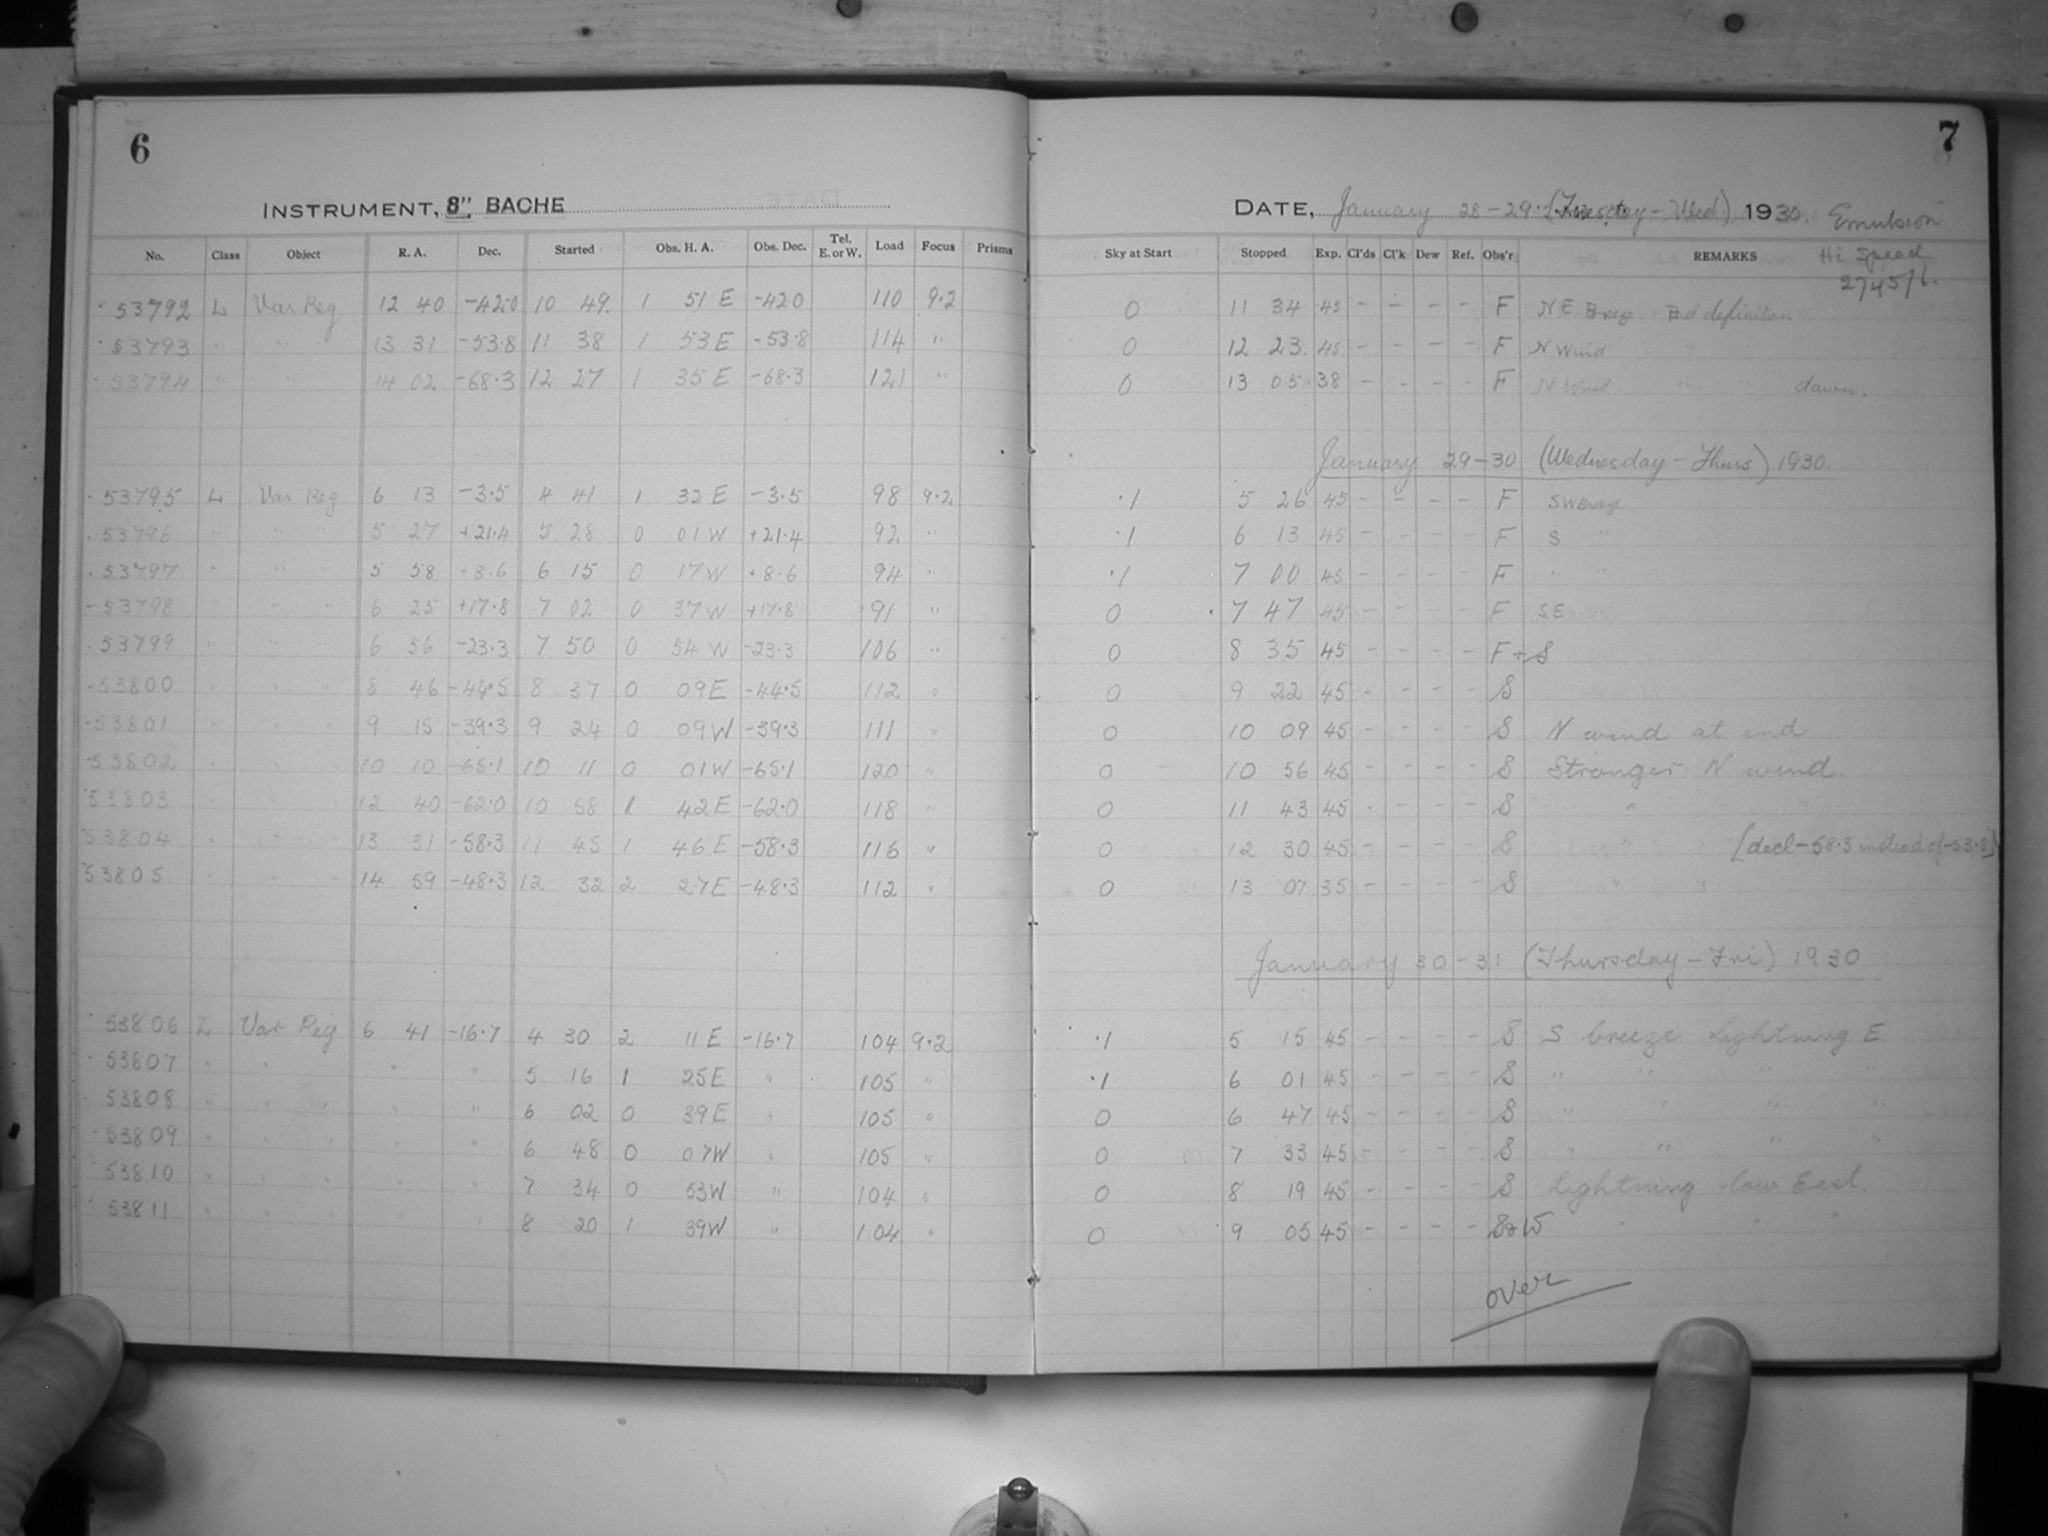 6
INSTRUMENT, 8" BACHE
No. Class Object R. A. Dec. Started Obs. H. A. Obs. Dec. Tel. E. or W. Load Focus Prisms
53792 L Var Reg 12 40 -42.0 10 49 1 51 E -42.0 110 9.2
53793 " " " 13 31 -53.8 11 38 1 53 E -53.8 114 "
53794 " " " 14 02 -68.3 12 27 1 35 E -68.3 121 "
53795 L Var Reg 6 13 -3.5 4 41 1 32 E -3.5 98 9.2
53796 " " " 5 27 +21.4 5 28 0 01 W +21.4 92 "
53797 " " " 5 58 +8.6 6 15 0 17 W +8.6 94 "
53798 " " " 6 25 +17.8 7 02 0 37 W +17.8 91 "
53799 " " " 6 56 -23.3 7 50 0 54 W -23.3 106 "
53800 " " " 8 46 -44.5 8 37 0 09 E -44.5 112 "
53801 " " " 9 15 -39.3 9 24 0 09 W -39.3 111 "
53802 " " " 10 10 -65.1 10 11 0 01 W -65.1 120 "
53803 " " " 12 40 -62.0 10 58 1 42 E -62.0 118 "
53804 " " " 13 31 -58.3 11 45 1 46 E -58.3 116 "
53805 " " " 14 59 -48.3 12 32 2 27 E -48.3 112 "
53806 L Var Reg 6 41 -16.7 4 30 2 11 E -16.7 104 9.2
53807 " " " " " 5 16 1 25 E " 105 "
53808 " " " " " 6 02 0 39 E " 105 "
53809 " " " " " 6 48 0 07 W " 105 "
53810 " " " " " 7 34 0 53 W " 104 "
53811 " " " " " 8 20 1 39 W " 104 "
7
DATE, January 28-29 (Tuesday-Wed) 1930. Emulsion
Sky at Start Stopped Exp. Cl'ds Cl'k Dew Ref. Obs'r. REMARKS Hi Speed
27451
0 11 34 45 - - - - F N E Breeze Bad definition
0 12 23 45 - - - - F N Wind
0 13 05 38 - - - - F N Wind " " dawn.
January 29-30 (Wednesday-Thurs) 1930.
.1 5 26 45 - - - - F SW Breeze
.1 6 13 45 - - - - F S "
.1 7 00 45 - - - - F " "
0 7 47 45 - - - - F SE
0 8 35 45 - - - - F+S
0 9 22 45 - - - - S
0 10 09 45 - - - - S N wind at end
0 10 56 45 - - - - S Stronger N wind.
0 11 43 45 - - - - S " "
0 12 30 45 - - - - S " [decl-58.3 instead of -53.8]
0 13 07 35 - - - - S " "
January 30-31 (Thursday-Fri) 1930
.1 5 15 45 - - - - S S breeze Lightning E
.1 6 01 45 - - - - S " " " "
0 6 47 45 - - - - S " " " "
0 7 33 45 - - - - S " " " "
0 8 19 45 - - - - S Lightning low East.
0 9 05 45 - - - - " " "
over